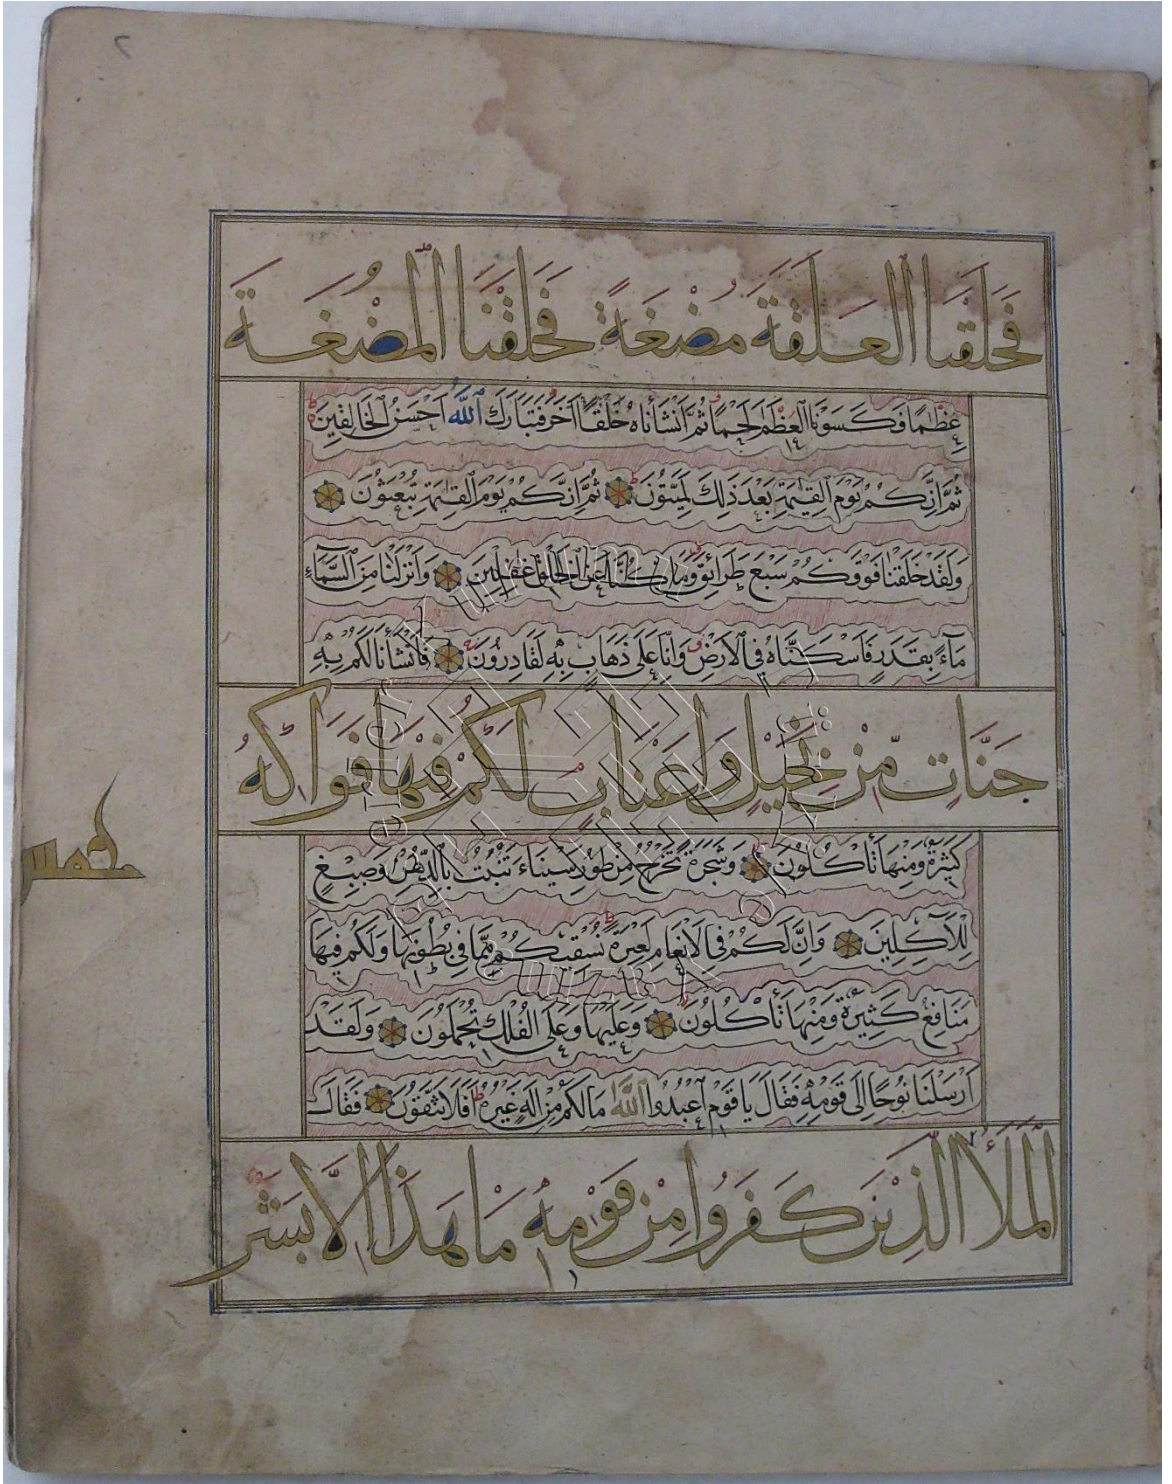 ٢
فَخَلَقْنَا الْعَلَقَةَ مُضْغَةً فَخَلَقْنَا الْمُضْغَةَ
عِظَٰمًا فَكَسَوْنَا الْعِظَٰمَ لَحْمًا ثُمَّ أَنْشَأْنَاهُ خَلْقًا آخَرَ فَتَبَارَكَ اللَّهُ أَحْسَنُ الْخَالِقِينَ
ثُمَّ إِنَّكُمْ بَعْدَ ذَلِكَ لَمَيِّتُونَ ثُمَّ إِنَّكُمْ يَوْمَ الْقِيَٰمَةِ تُبْعَثُونَ
وَلَقَدْ خَلَقْنَا فَوْقَكُمْ سَبْعَ طَرَائِقَ وَمَا كُنَّا عَنِ الْخَلْقِ غَٰفِلِينَ وَأَنْزَلْنَا مِنَ السَّمَاءِ
مَاءً بِقَدَرٍ فَأَسْكَنَّاهُ فِي الْأَرْضِ وَإِنَّا عَلَى ذَهَابٍ بِهِ لَقَادِرُونَ فَأَنْشَأْنَا لَكُمْ بِهِ
جَنَّاتٍ مِّنْ نَخِيلٍ وَأَعْنَابٍ لَكُمْ فِيهَا فَوَاكِهُ
كَثِيرَةٌ وَمِنْهَا تَأْكُلُونَ وَشَجَرَةً تَخْرُجُ مِنْ طُورِ سَيْنَاءَ تَنْبُتُ بِالدُّهْنِ وَصِبْغٍ
خمس
لِلْآكِلِينَ وَإِنَّ لَكُمْ فِي الْأَنْعَامِ لَعِبْرَةً نُسْقِيكُمْ مِمَّا فِي بُطُونِهَا وَلَكُمْ فِيهَا
مَنَافِعُ كَثِيرَةٌ وَمِنْهَا تَأْكُلُونَ وَعَلَيْهَا وَعَلَى الْفُلْكِ تُحْمَلُونَ وَلَقَدْ
أَرْسَلْنَا نُوحًا إِلَى قَوْمِهِ فَقَالَ يَا قَوْمِ اعْبُدُوا اللَّهَ مَا لَكُمْ مِنْ إِلَهٍ غَيْرُهُ أَفَلَا تَتَّقُونَ فَقَالَ
الْمَلَأُ الَّذِينَ كَفَرُوا مِنْ قَوْمِهِ مَا هَذَا إِلَّا بَشَرٌ